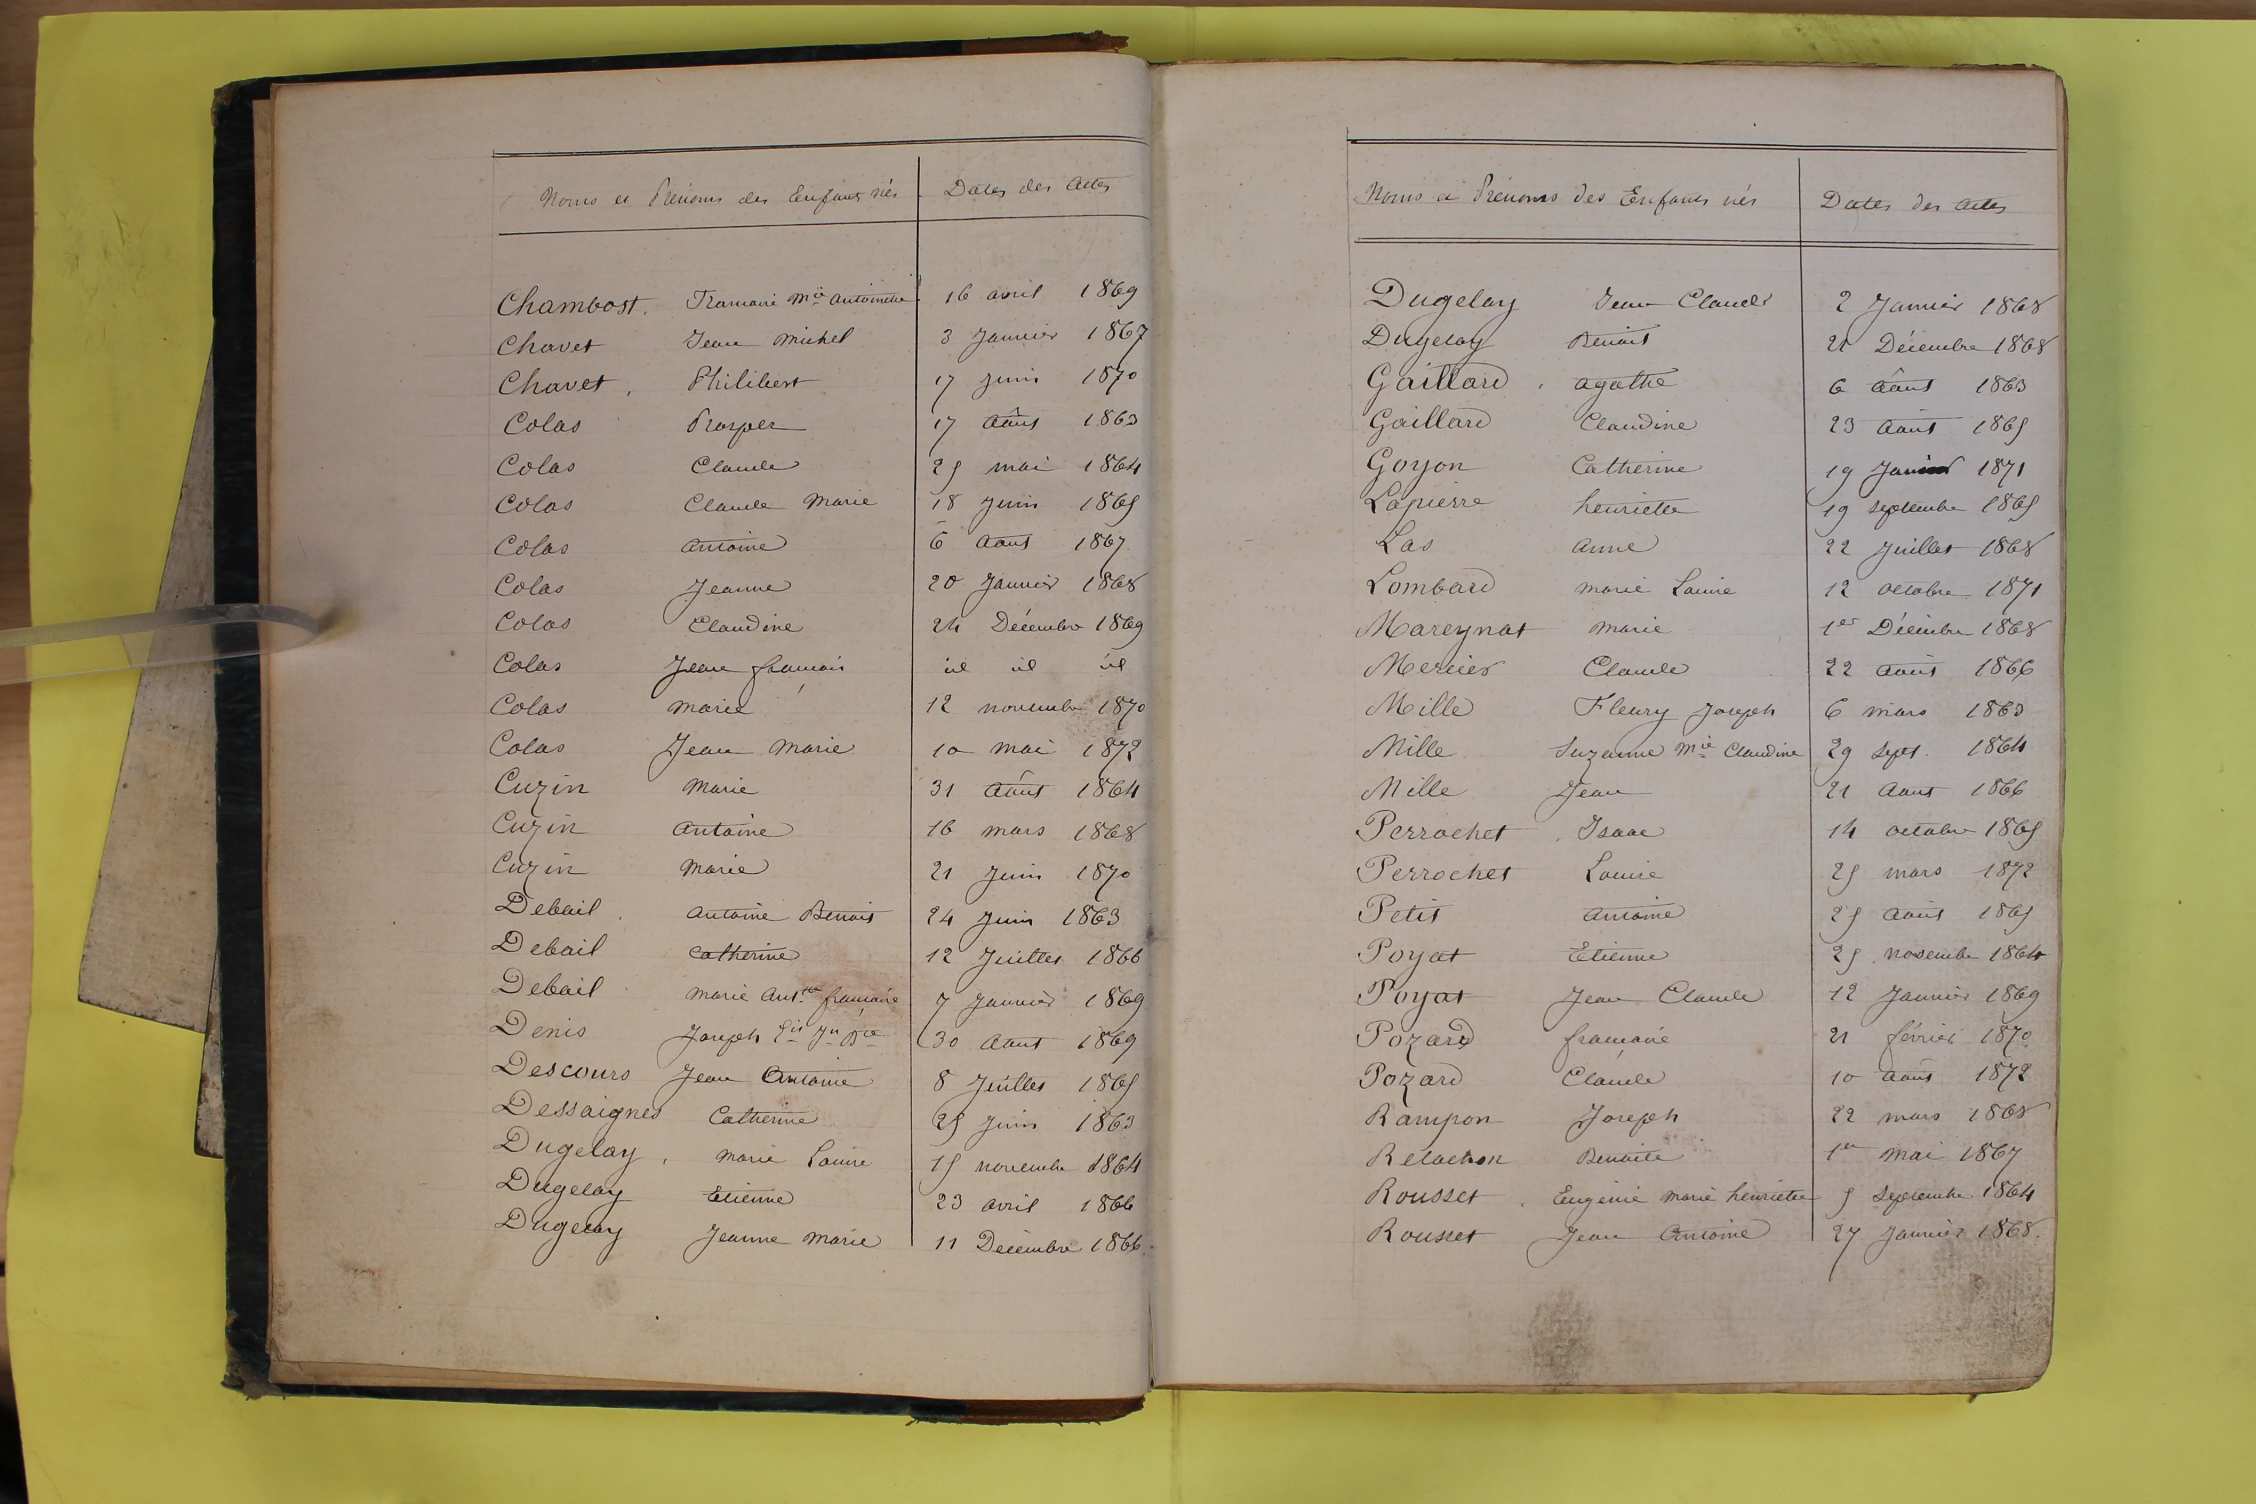 Noms et Prénoms des Enfants nés Dates des Actes
Chambost. Francoise Mie antoinette 16 avril 1869
Chavet Jean Michel 3 Janvier 1867
Chavet, Philibert 17 juin 1870
Colas Prosper 17 Août 1863
Colas Claude 25 mai 1864
Colas Claude Marie 18 Juin 1865
Colas antoine 6 Aout 1867
Colas Jeanne 20 Janvier 1868
Colas Claudine 24 Décembre 1869
Colas Jean françois id id id
Colas Marie 12 novembre 1870
Colas Jean Marie 10 mai 1872
Cuzin Marie 31 Août 1864
Cuzin Antoine 16 mars 1868
Cuzin Marie 21 Juin 1870
Debail. antoine Benoit 24 Juin 1863
Debail catherine 12 Juillet 1866
Debail marie Ant.tte francoise 7 Janvier 1869
Denis Joseph 30 Aout 1869
Descours Jean Antoine 8 Juillet 1865
Dessaignes Catherine 25 Juin 1863
Dugelay, Marie Louise 15 novembre 1864
Dugelay Etienne 23 avril 1866
Dugelay Jeanne Marie 11 Décembre 1866
Noms et Prénoms des Enfants nés Dates des Actes
Dugelay Jean Claude 2 Janvier 1868
Dugelay Benoit 21 Décembre 1868
Gaillard, agathe 6 Août 1863
Gaillard Claudine 23 Août 1865
Goyon Catherine 19 1871
Lapierre henriette 19 septembre 1865
Las anne 22 Juillet 1868
Lombard marie Louise 12 octobre 1871
Mareynat Marie 1er Décembre 1868
Mercier Claude 22 Août 1866
Mille Fleury Joseph 6 mars 1863
Mille Suzanne Mie Claudine 29 Sept. 1864
Mille Jean 21 Aout 1866
Perrochet. Isaac 14 octobre 1865
Perrochet Louise 25 mars 1872
Petit Antoine 25 Août 1865
Poyat Etienne 25 novembre 1864
Poyat Jean Claude 12 Janvier 1869
Pozard francoise 21 février 1870
Pozard Claude 10 Août 1872
Rampon Joseph 22 mars 1868
Relachon Benoite 1er Mai 1867
Rousset. Eugénie marie henriette 5 Septembre 1864
Rousset Jean Antoine 27 Janvier 1868.